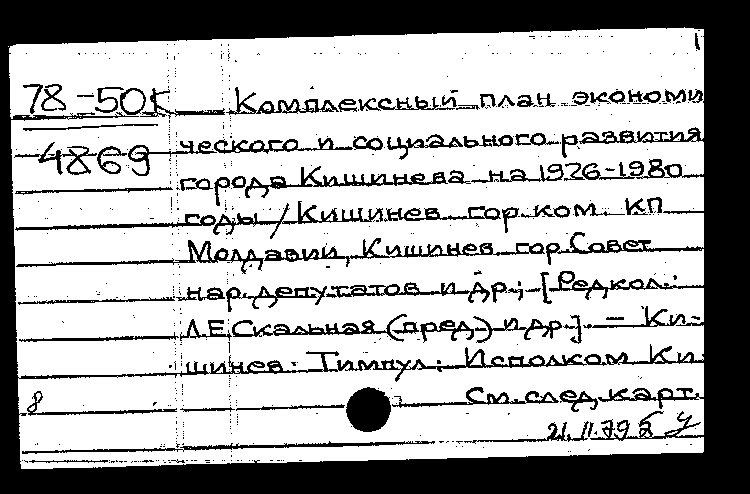 78-50К Комплексный план экономи
4869 ческого и социального развития
города Кишинева на 1926-1980
годы / Кишинев. гор. ком. КП
Молдавии, Кишинев. гор. Совет
нар. депутатов и др.; [Редкол.:
Л.Е Скальная (пред.) и др.]. – Ки-
шинев: Тимпул: Исполком Ки-
8 См. след. карт.
21.11.79